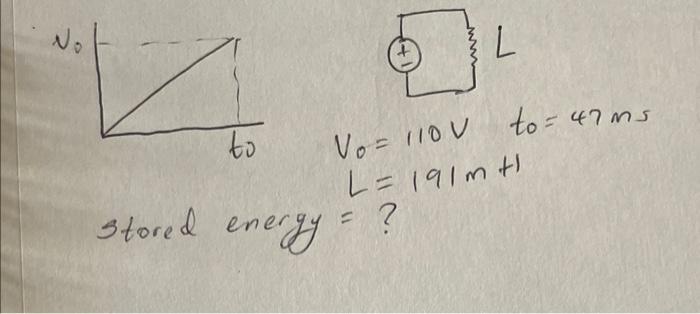 V₀
+
-
L
t₀
V₀ = 110 V t₀ = 47 ms
L = 191 mH
Stored energy = ?